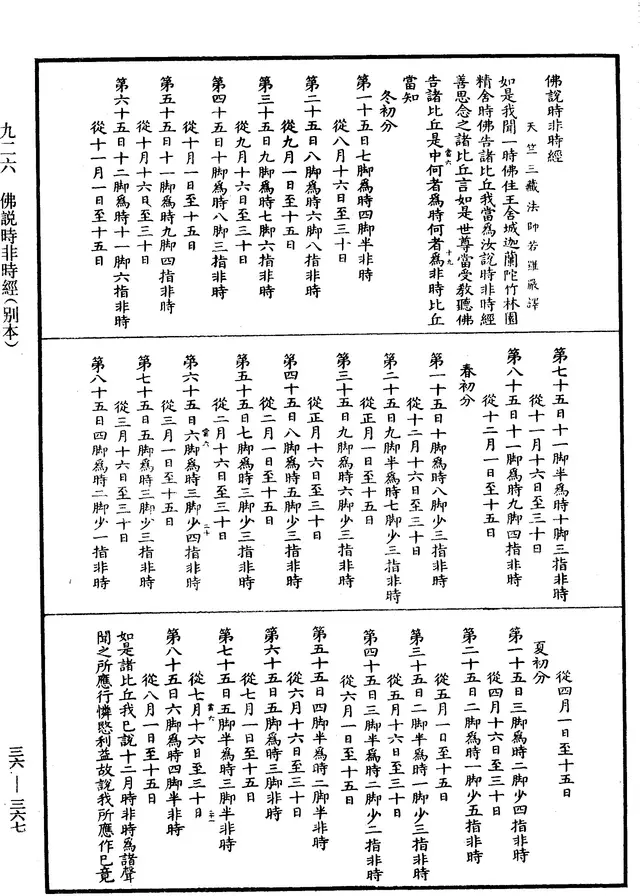 佛說時非時經
天竺三藏法師若羅嚴譯
如是我聞一時佛住王舍城迦蘭陀竹林園
精舍時佛告諸比丘我當爲汝說時非時經
善思念之諸比丘言如是世尊當受教聽佛
告諸比丘是中何者爲時何者爲非時比丘
當知
冬初分
第一十五日七脚爲時四脚半非時
從八月十六日至三十日
第二十五日八脚爲時六脚八指非時
從九月一日至十五日
第三十五日九脚爲時七脚六指非時
從九月十六日至三十日
第四十五日十脚爲時八脚三指非時
從十月一日至十五日
第五十五日十一脚爲時九脚四指非時
從十月十六日至三十日
第六十五日十二脚爲時十一脚六指非時
從十一月一日至十五日
第七十五日十一脚半爲時十脚三指非時
從十一月十六日至三十日
第八十五日十一脚爲時九脚四指非時
從十二月一日至十五日
春初分
第一十五日十脚爲時八脚少三指非時
從十二月十六日至三十日
第二十五日九脚半爲時七脚少三指非時
從正月一日至十五日
第三十五日九脚爲時六脚少三指非時
從正月十六日至三十日
第四十五日八脚爲時五脚少三指非時
從二月一日至十五日
第五十五日七脚爲時三脚少三指非時
從二月十六日至三十日
第六十五日六脚爲時三脚少四指非時
從三月一日至十五日
第七十五日五脚爲時三脚少三指非時
從三月十六日至三十日
第八十五日四脚爲時二脚少一指非時
從四月一日至十五日
夏初分
第一十五日三脚爲時二脚少四指非時
從四月十六日至三十日
第二十五日二脚爲時一脚少五指非時
從五月一日至十五日
第三十五日二脚半爲時一脚少三指非時
從五月十六日至三十日
第四十五日三脚半爲時二脚少二指非時
從六月一日至十五日
第五十五日四脚爲時二脚半非時
從六月十六日至三十日
第六十五日五脚爲時三脚非時
從七月一日至十五日
第七十五日五脚半爲時三脚半非時
從七月十六日至三十日
第八十五日六脚爲時四脚半非時
從八月一日至十五日
如是諸比丘我已說十二月時非時爲諸聲
聞之所應行憐愍利益故說我所應作已竟
九二六 佛說時非時經(别本)
三六 — 三六七